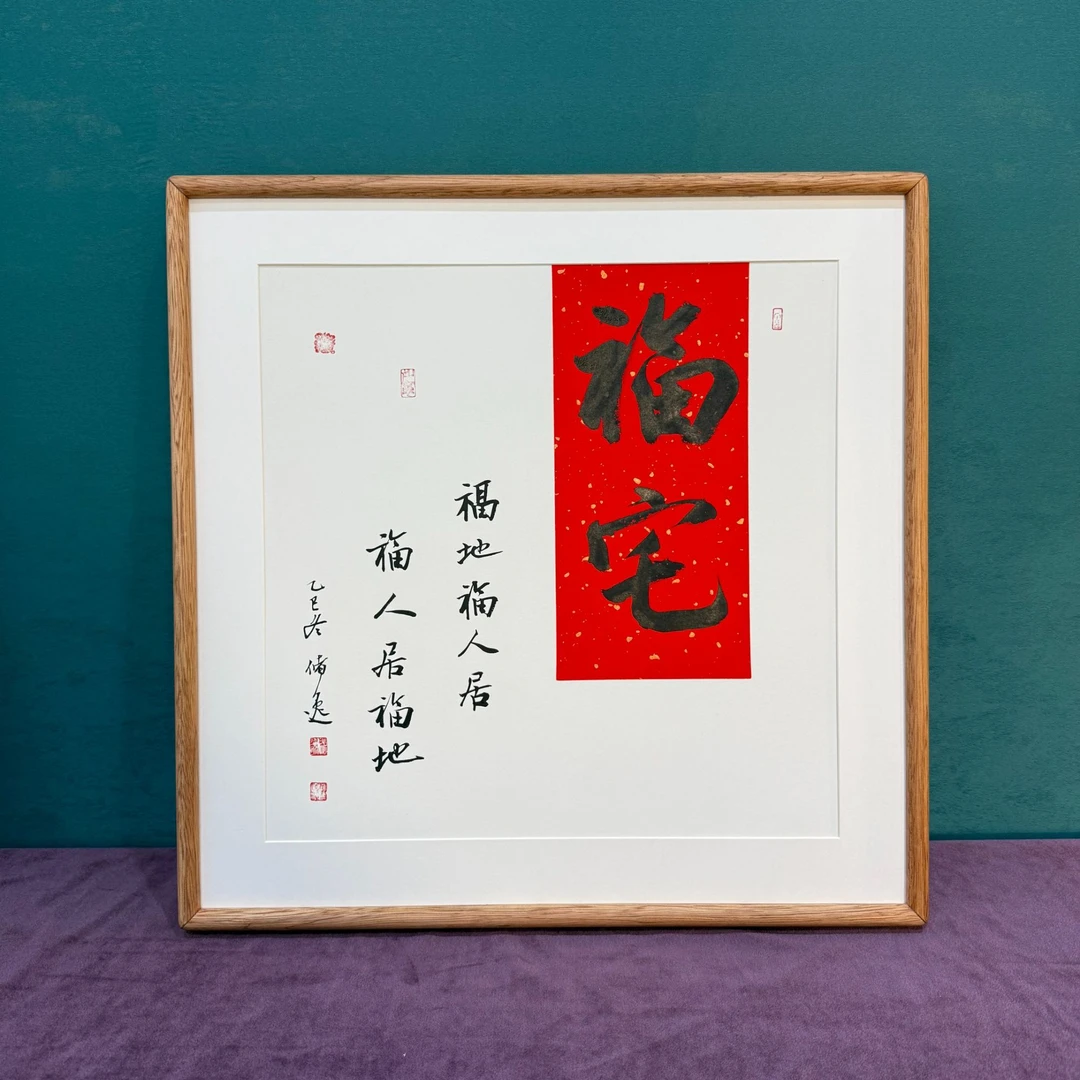 福宅
福地福人居
福人居福地
乙巳冬 储逸